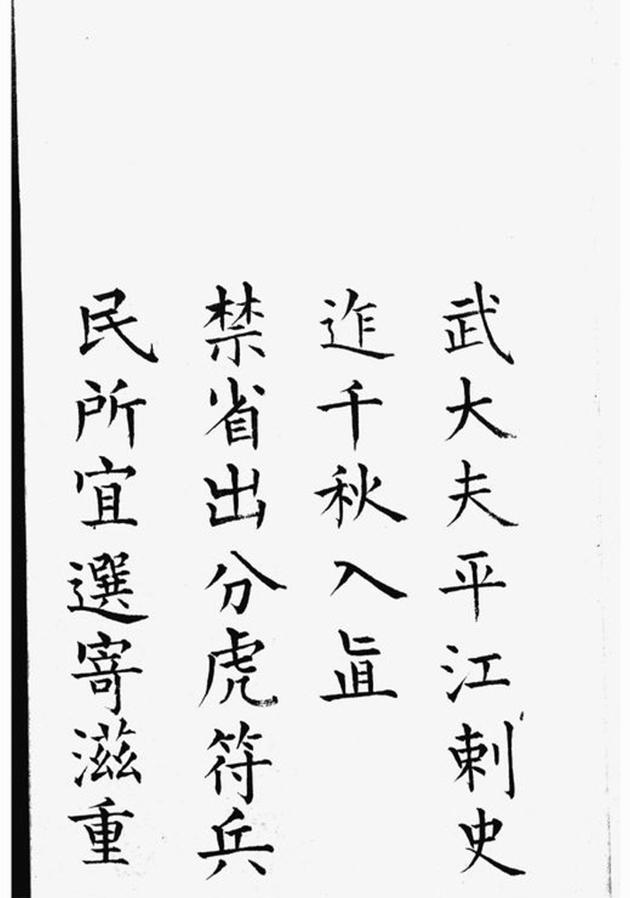 武大夫平江刺史
迮千秋入直
禁省出分虎符兵
民所宜選寄滋重